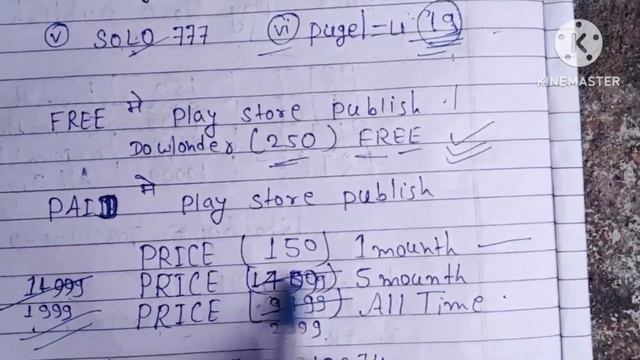 (v) SOLO 777 (vi) pugel=u (19)
KINEMASTER
FREE में Play store publish.
Dowlonder (250) FREE
PAID में play store publish
PRICE (150) 1 mounth
11999 PRICE 5 mounth
1999 PRICE All Time.